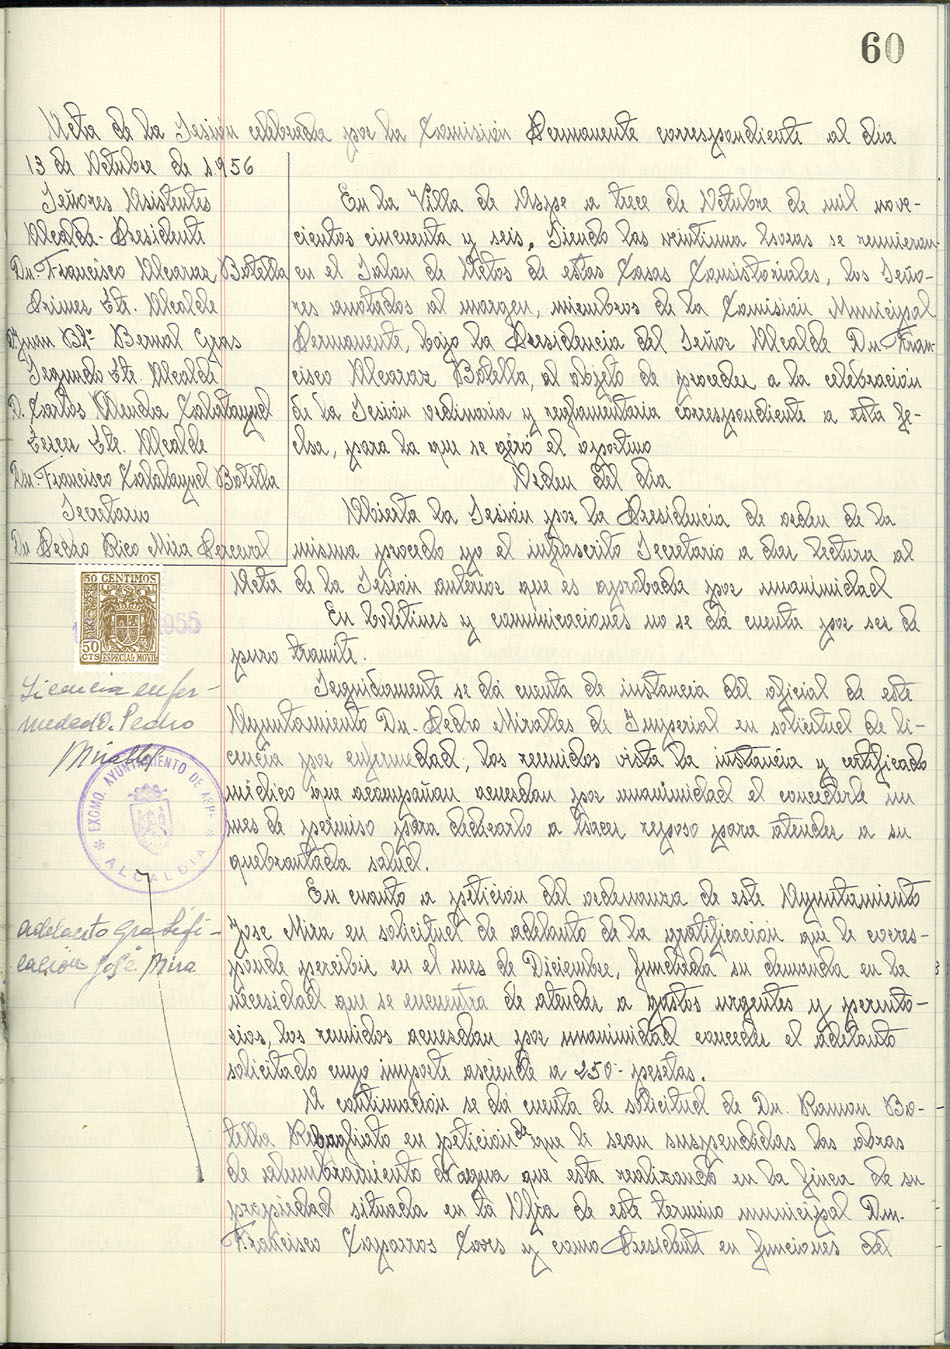 60
Acta de la Sesión celebrada por la Comisión Permanente correspondiente al dia
13 de Octubre de 1.956
Señores Asistentes
Alcalde-Presidente
Dn. Francisco Alcaraz Botella
Primer Tte. Alcalde
Dn. Juan Btª Bernal Gras
Segundo Tte. Alcalde
D. Carlos Calatayud
Tercer Tte. Alcalde
Dn. Francisco Calatayud Botella
Secretario
Dn Pedro Rico Mira Perceval
En la Villa de Aspe a trece de Octubre de mil nove-
cientos cincuenta y seis, Siendo las veintiuna horas se reunieron
en el Salon de Actos de estas Casas Consistoriales, los Seño-
res anotados al margen, miembros de la Comisión Municipal
Permanente, bajo la Presidencia del Señor Alcalde Dn. Fran-
cisco Alcaraz Botella, al objeto de proceder a la celebración
de la Sesión ordinaria y reglamentaria correspondiente a esta fe-
cha, para la que se giró el oportuno
Orden del dia
Abierta la Sesión por la Presidencia de orden de la
misma procedo yo el infrascrito Secretario a dar lectura al
Acta de la Sesión anterior que es aprobada por unanimidad
En boletines y comunicaciones no se dá cuenta por ser de
puro tramite.
Seguidamente se dá cuenta de instancia del oficial de este
Ayuntamiento Dn. Pedro Miralles de Imperial en solicitud de li-
cencia por enfermedad, los reunidos vista la instancia y certificado
médico que acompañan acuerdan por unanimidad el concederle un
mes de permiso para dedicarlo a hacer reposo para atender a su
quebrantada salud.
En cuanto a petición del ordenanza de este Ayuntamiento
Jose Mira en solicitud de adelanto de la gratificación que le corres-
ponde percibir en el mes de Diciembre, fundada su demanda en la
necesidad que se encuentra de atender a gastos urgentes y perento-
rios, los reunidos acuerdan por unanimidad conceder el adelanto
solicitado cuyo importe asciende a 250- pesetas.
A continuación se dá cuenta de solicitud de Dn. Ramon Bo-
tella Rebagliato en petición de que le sean suspendidas las obras
de alumbramiento de agua que esta realizando en la finca de su
propiedad situada en la Ofra de este termino municipal Dn.
Francisco Caparros Cors y como Presidente en funciones del
50 CENTIMOS
50
CTS
ESPECIAL MOVIL
1955
Licencia enfer-
medad D. Pedro
Miralles
EXCMO. AYUNTAMIENTO DE ASPE
ALCALDIA
adelanto gratifi-
cación José Mira